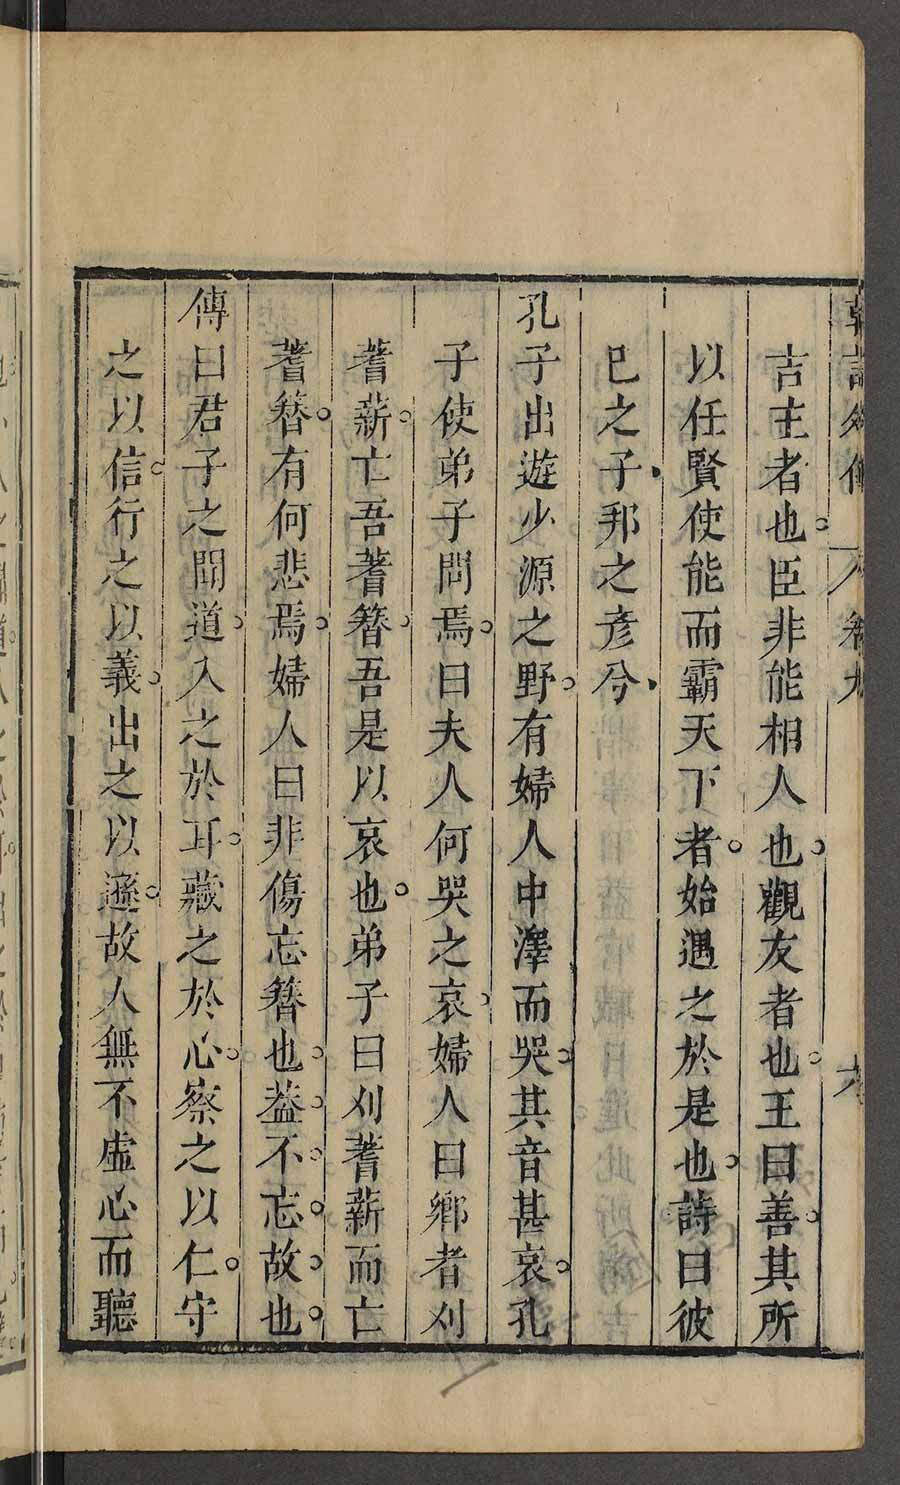 韓詩外傳 卷九 六
吉主者也臣非能相人也觀友者也王曰善其所
以任賢使能而霸天下者始遇之於是也詩曰彼
已之子邦之彥兮
孔子出遊少源之野有婦人中澤而哭其音甚哀孔
子使弟子問焉曰夫人何哭之哀婦人曰鄉者刈
蓍薪亡吾蓍簪吾是以哀也弟子曰刈蓍薪而亡
蓍簪有何悲焉婦人曰非傷忘簪也葢不忘故也
傳曰君子之聞道入之於耳藏之於心察之以仁守
之以信行之以義出之以遜故人無不虛心而聽